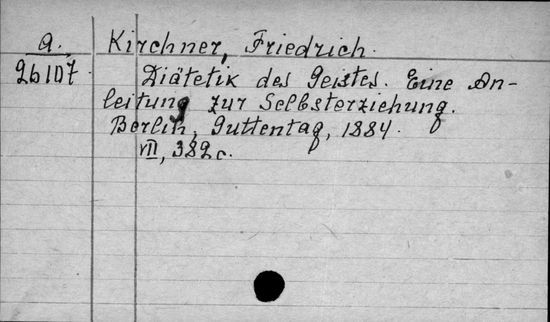 a. Kirchner, Friedrich.
26107. Diätetik des Geistes. Eine An-
leitung zur Selbsterziehung.
Berlin, Guttentag, 1884.
VII, 382 c.